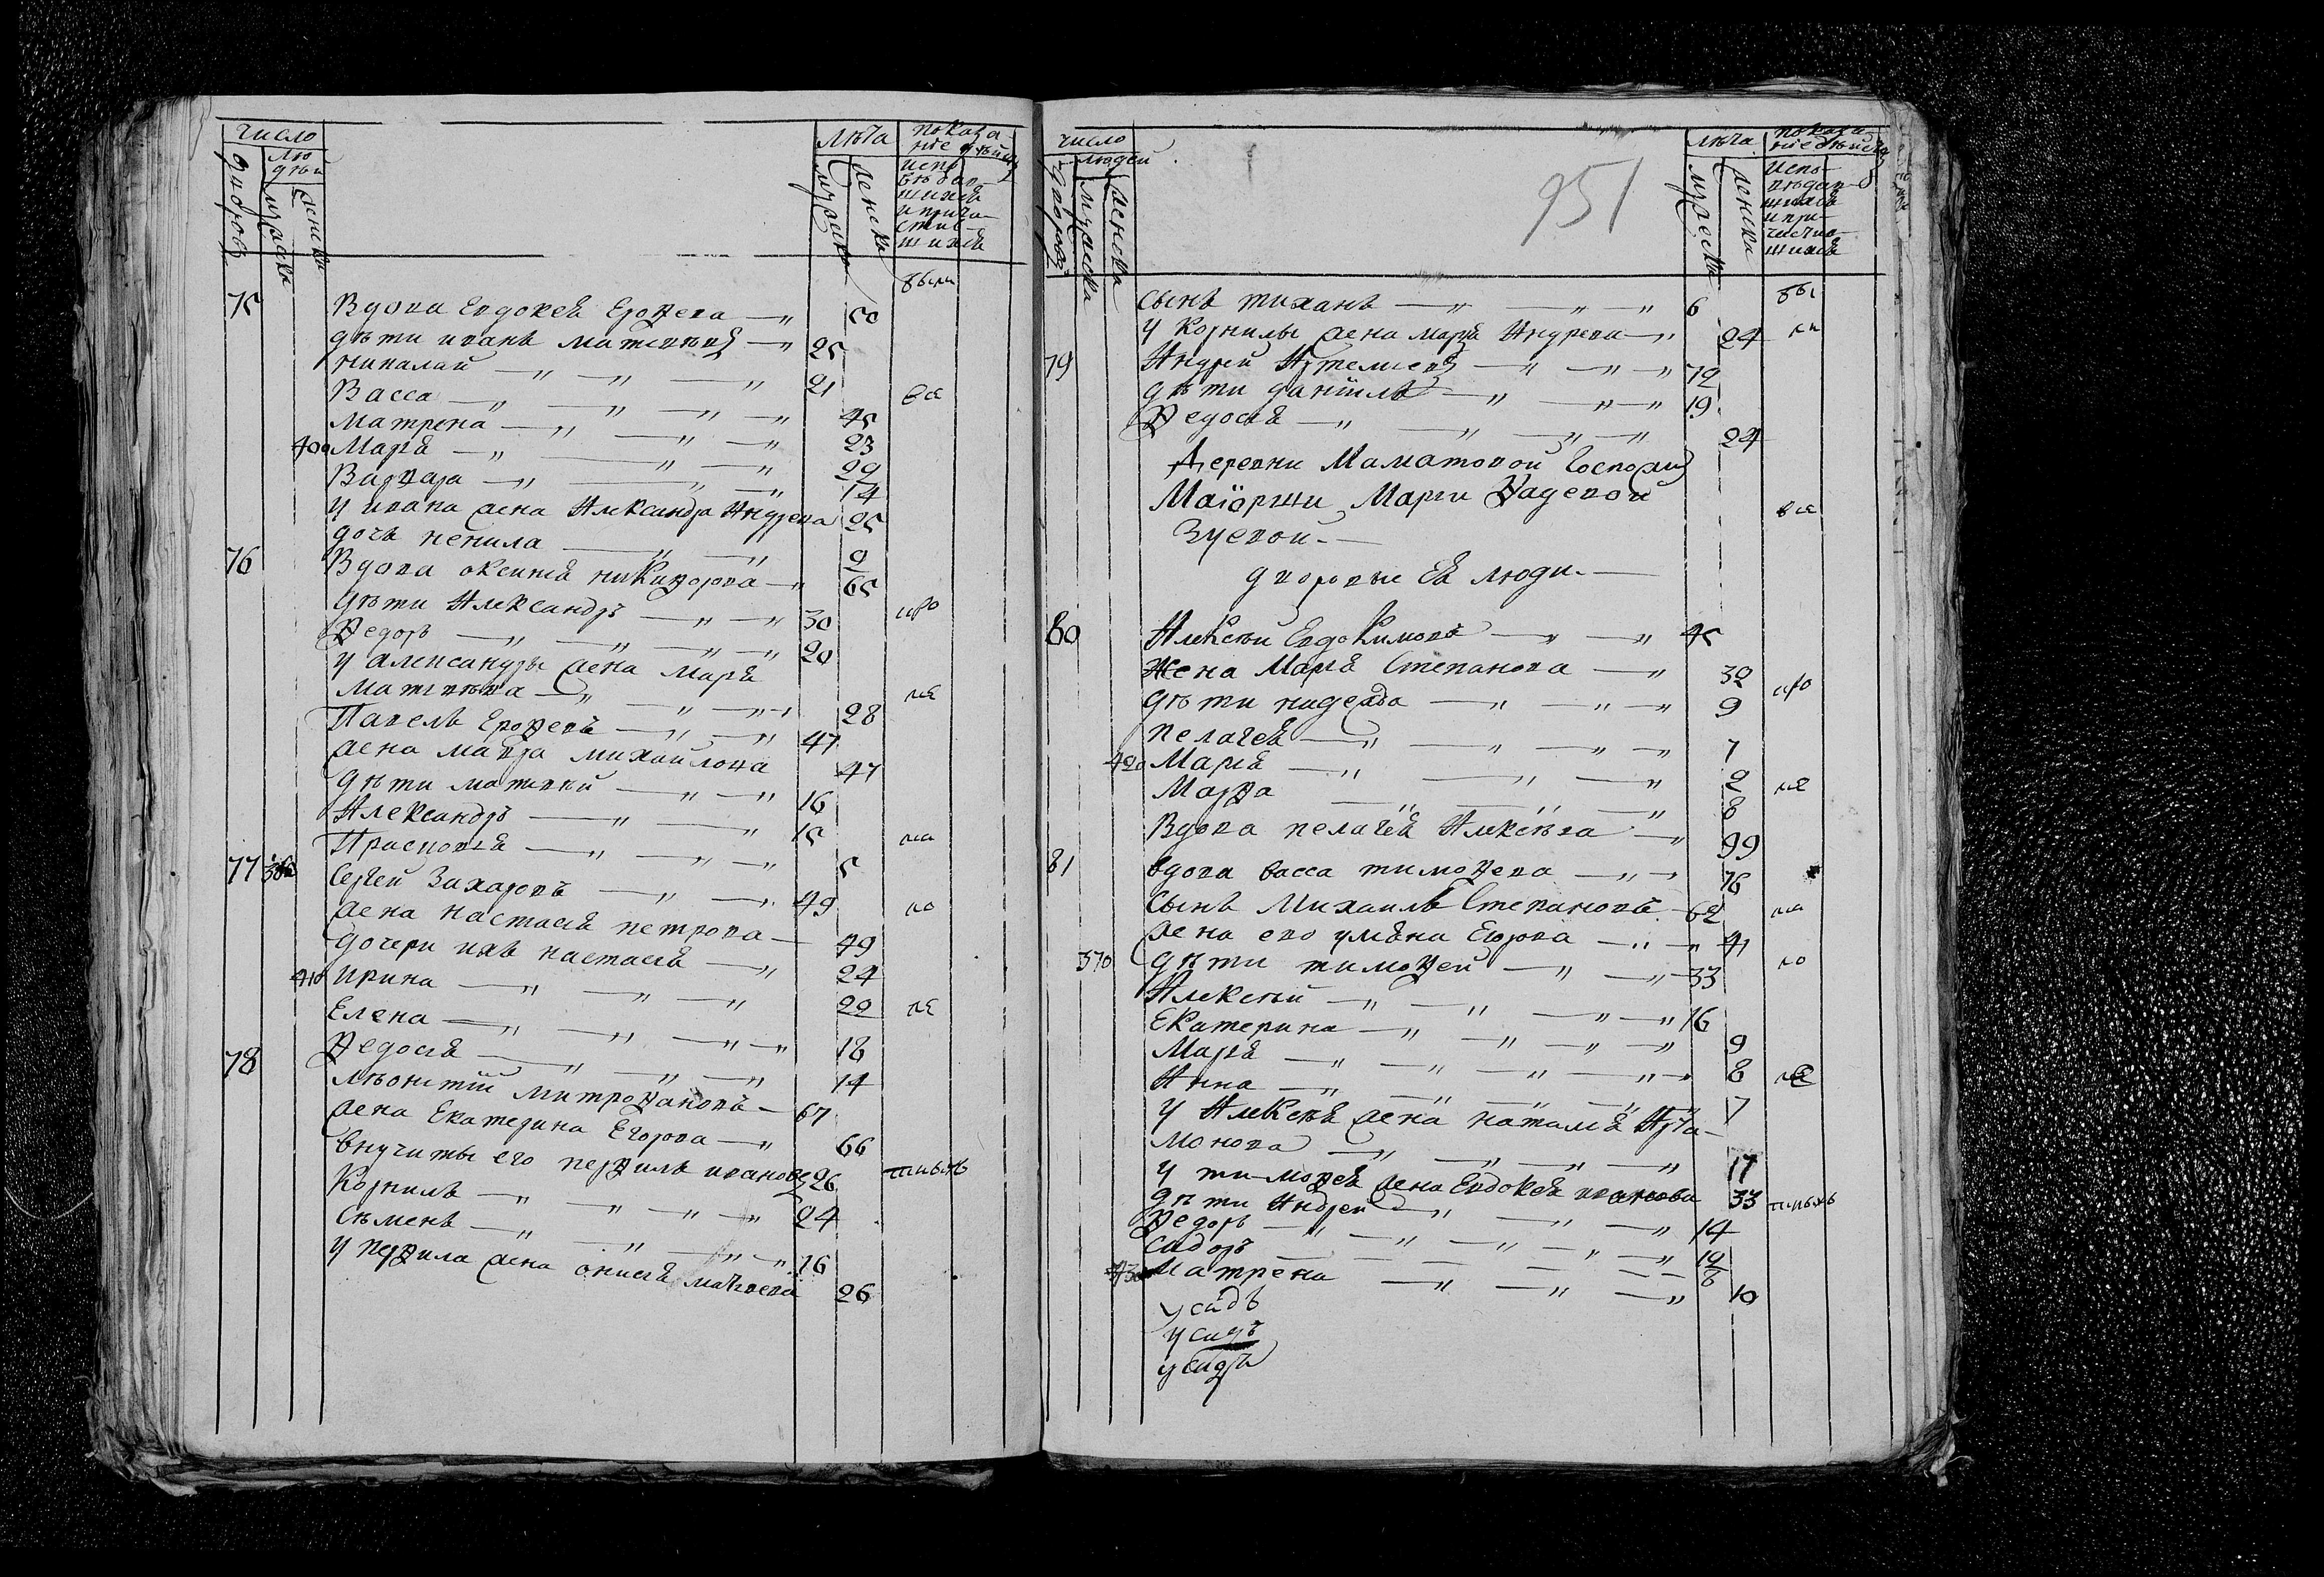 число
лѣта
показа-
ніе дѣйст
дворовъ
лю
дѣй
мужеска
женска
мужеска
женска
испо
вѣдав-
шихся
и прича-
стив-
шихся
были
75 Вдова Евдокея Ерофеева —„ 50
дѣти иванъ матвѣевъ —„ 25
николай —„ —„ —„ 21
Васса —„ —„ —„ —„ 45
все
матрена —„ —„ —„ 23
400 Марья —„ —„ —„ 22
Варвара —„ —„ —„ 14
у ивана жена Александра Андреева 25
дочь ненила —„ —„ 9
76 Вдова оксинья никифорова —„ 65
дѣти Александръ —„ —„ 30
испо
Федоръ —„ —„ —„ —„ 20
у александры жена марья
матвѣева —„ —„ —„ 28
Павелъ Ерофеевъ —„ —„ 47
жена мавра михайлова 47
дѣти матвѣй —„ —„ 16
Александръ —„ —„ 15
Прасковья —„ —„ —„ 5
77 360 Сергей Захаровъ —„ —„ 49
жена настасья петрова — 49
дочери ихъ настасья —„ 24
410 ирина —„ —„ —„ 22
Елена —„ —„ —„ —„ 18
Федосья —„ —„ —„ 14
78 лѣонтій митрофановъ — 67
жена Екатерина Егорова —„ 66
внучиты его перфилъ ивановъ 26
Корнилъ —„ —„ —„ —„ 24
Сѣменъ —„ —„ —„ —„ 16
у перфила жена анисья матвеева 26
951
число
людей
дворовъ
мужеска
женска
лѣта
мужеска
женска
показа-
ніе дѣйст
испо-
вѣдав-
шихся
и при-
частив-
шихся
бы
ли
сынъ тиханъ —„ —„ —„ 6
у Корнилы жена марья Андреева —„ 24
79 Андрей Артемьевъ —„ —„ —„ 72
дѣти даніилъ —„ —„ —„ 19
Федосья —„ —„ —„ —„ 24
Деревни Маматовой Госпожи
Маіорши Марги Фадевой
все
Зуевой. —
дворовые Ея люди. —
80 Алексѣи Евдокимовъ —„ —„ 45
Жена Марья Степанова —„ 32
дѣти надежда —„ —„ —„ 9
пелагея —„ —„ —„ —„ 7
420 Марья —„ —„ —„ 2
Марфа —„ —„ —„ 8
Вдова пелагея Алексѣева —„ 99
81 вдова васса тимофеева —„ —„ 76
сынъ Михаилъ Степановъ — 62
жена его ульяна Егорова —„ —„ 41
370 дѣти тимофей —„ —„ 33
Алексѣй —„ —„ —„ —„ 16
Екатерина —„ —„ —„ —„ 9
Марья —„ —„ —„ —„ 8
Анна —„ —„ —„ —„ 7
у Алексѣя жена наталья Арта-
монова —„ —„ —„ —„ 17
у тимофея жена Евдокея иванова 33
дѣти Андрей —„ —„ —„ 14
Федоръ —„ —„ —„ —„ —„ 12
Сидоръ — — — — 8
430 матрена —„ —„ —„ 10